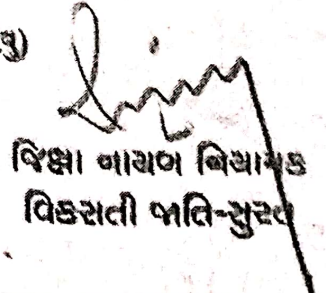 ૩)
જિલ્લા નાયબ નિયામક
વિકસતી જાતિ-સુરત